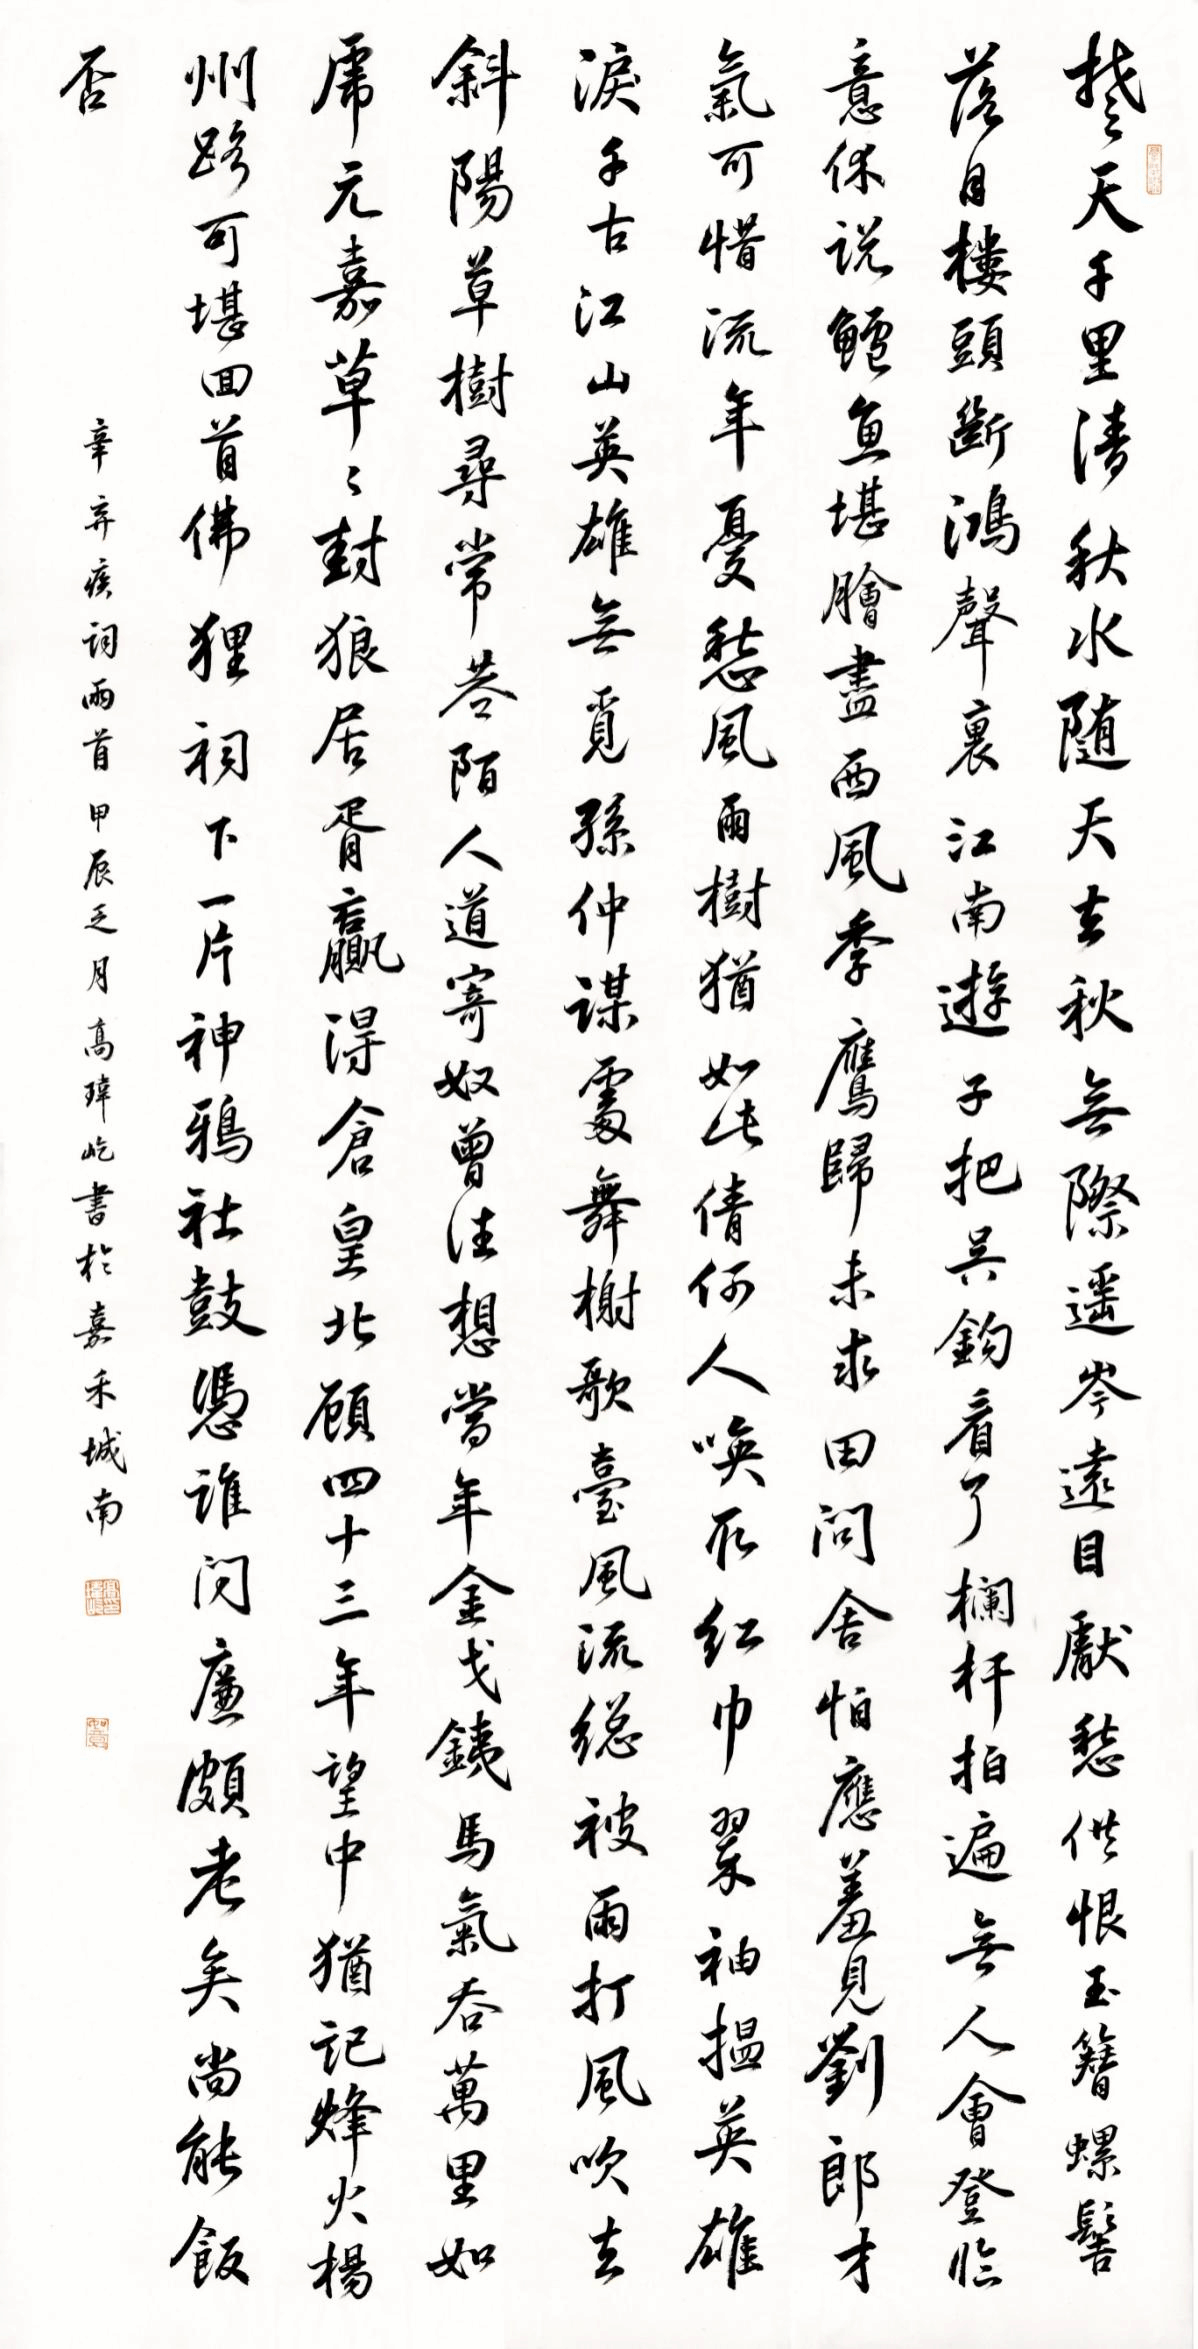 楚天千里清秋水随天去秋無際遥岑遠目獻愁供恨玉簪螺髻
落日樓頭斷鴻聲裏江南遊子把吴鈎看了欄杆拍遍無人會登臨
意休説鱸魚堪膾盡西風季鷹歸未求田問舍怕應羞見劉郎才
氣可惜流年憂愁風雨樹猶如此倩何人唤取紅巾翠袖揾英雄
淚千古江山英雄無覓孫仲謀處舞榭歌臺風流總被雨打風吹去
斜陽草樹尋常巷陌人道寄奴曾住想當年金戈鐵馬氣吞萬里如
虎元嘉草〻封狼居胥贏得倉皇北顧四十三年望中猶記烽火楊
州路可堪回首佛狸祠下一片神鴉社鼓憑誰問廉頗老矣尚能飯
否
辛弃疾詞兩首甲辰乏月高瑋屹書於嘉禾城南